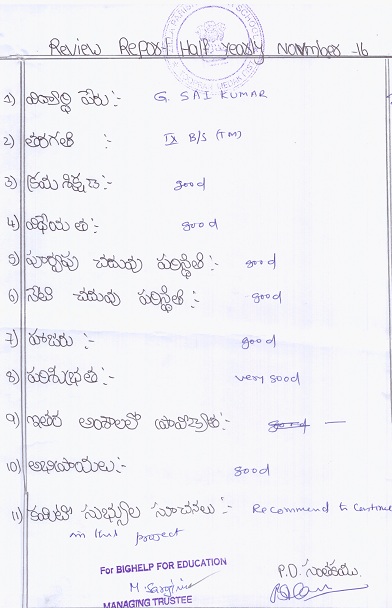 Review Report Half Yearly November -16
1) విద్యార్థి పేరు :- G. SAI KUMAR
2) తరగతి :- IX B/S (TM)
3) క్రమ శిక్షణ :- good
4) విధేయత :- good
5) పూర్వపు చదువు పరిస్థితి :- good
6) నేటి చదువు పరిస్థితి :- good
7) హాజరు :- good
8) పరిశుభ్రత :- very good
9) ఇతర అంశాలలో :- good —
10) అభిప్రాయాలు :- good
11) కమిటీ సభ్యుల సూచనలు :- Recommend to Continue
in this project
For BIGHELP FOR EDUCATION
P.D. సంతకము
MANAGING TRUSTEE